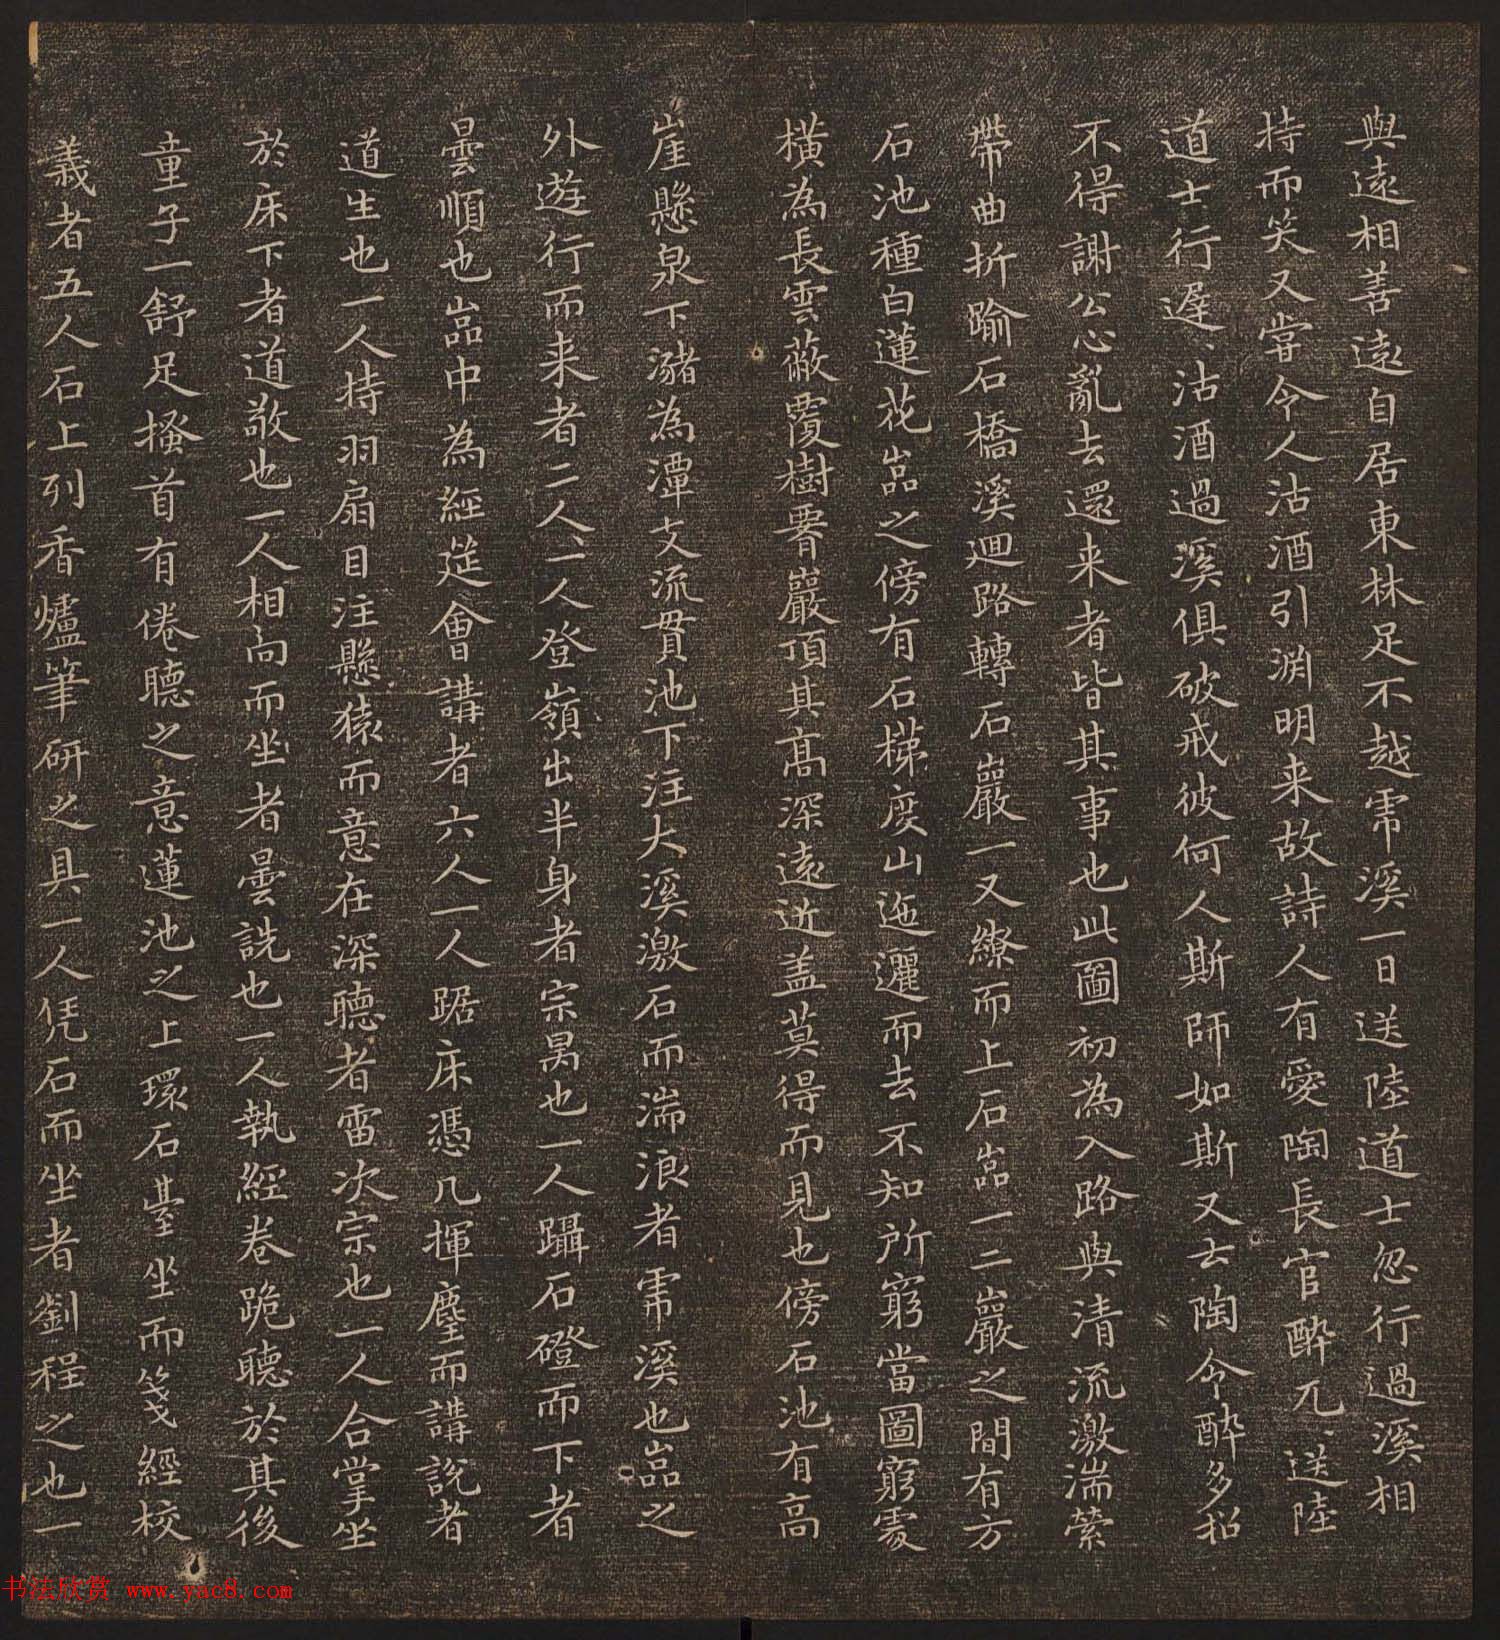 與遠相善遠自居東林足不越虎溪一日送陸道士忽行過溪相
持而笑又嘗令人沽酒引淵明来故詩人有愛陶長官醉兀〻送陸
道士行遲〻沽酒過溪俱破戒彼何人斯師如斯又云陶令醉多招
不得謝公心亂去還来者皆其事也此圖初為入路與清流激湍縈
帶曲折踰石橋溪迴路轉石巖一又繚而上石嵓一二巖之間有方
石池種白蓮花嵓之傍有石梯度山迤邐而去不知所窮當圖窮處
橫為長雲蔽覆樹腰巖頂其髙深遠近盖莫得而見也傍石池有高
崖懸泉下瀦為潭支流貫池下注大溪激石而湍浪者虎溪也嵓之
外遊行而来者二人〻一人登嶺出半身者宗昺也一人躡石磴而下者
曇順也嵓中為經筵會講者六人一人踞床憑几揮麈而講說者
道生也一人持羽扇目注懸猿而意在深聽者雷次宗也一人合掌坐
於床下者道敬也一人相向而坐者曇詵也一人執經卷跪聽於其後
童子一舒足搔首有倦聽之意蓮池之上環石臺坐而箋經校
義者五人石上列香爐筆研之具一人凭石而坐者劉程之也一
书法欣赏 www.yac8.com